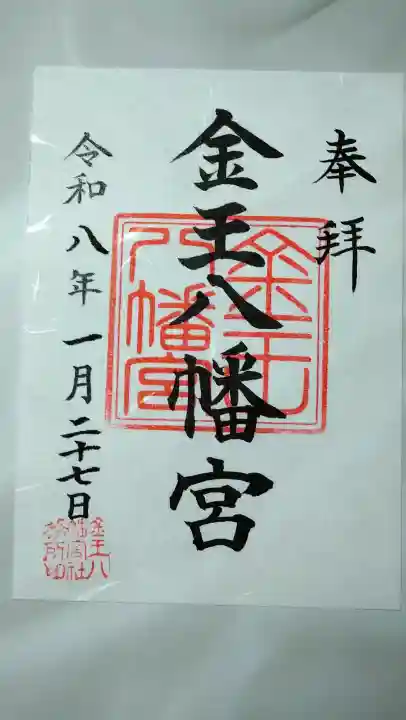 奉拝
金王八幡宮
金王八幡宮
令和八年一月二十七日
金王八幡宮社務所印